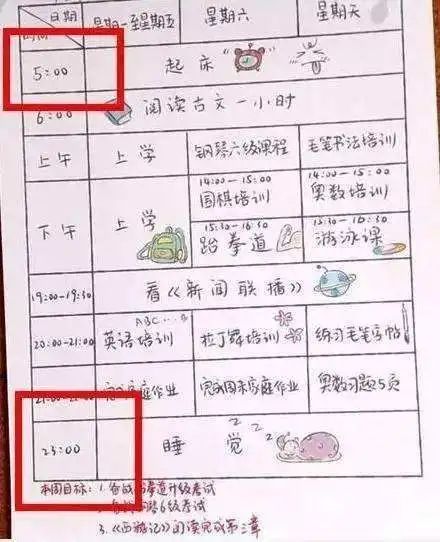 日期
时间
星期一至星期五 星期六 星期天
5:00 起床
6:00 阅读古文一小时
上午 上学 钢琴六级课程 毛笔书法培训
下午 上学
14:00-15:00 14:00-15:00
围棋培训 奥数培训
15:30-16:30 15:30-16:30
跆拳道 游泳课
19:00-19:30 看《新闻联播》
ABC...
20:00-21:00 英语培训 拉丁舞培训 练习毛笔字帖
家庭作业 完成周末家庭作业 奥数习题5页
zzz
23:00 睡觉
本周目标: 1. 备战跆拳道升级考试
6级考试
3.《西游记》阅读完成第三章